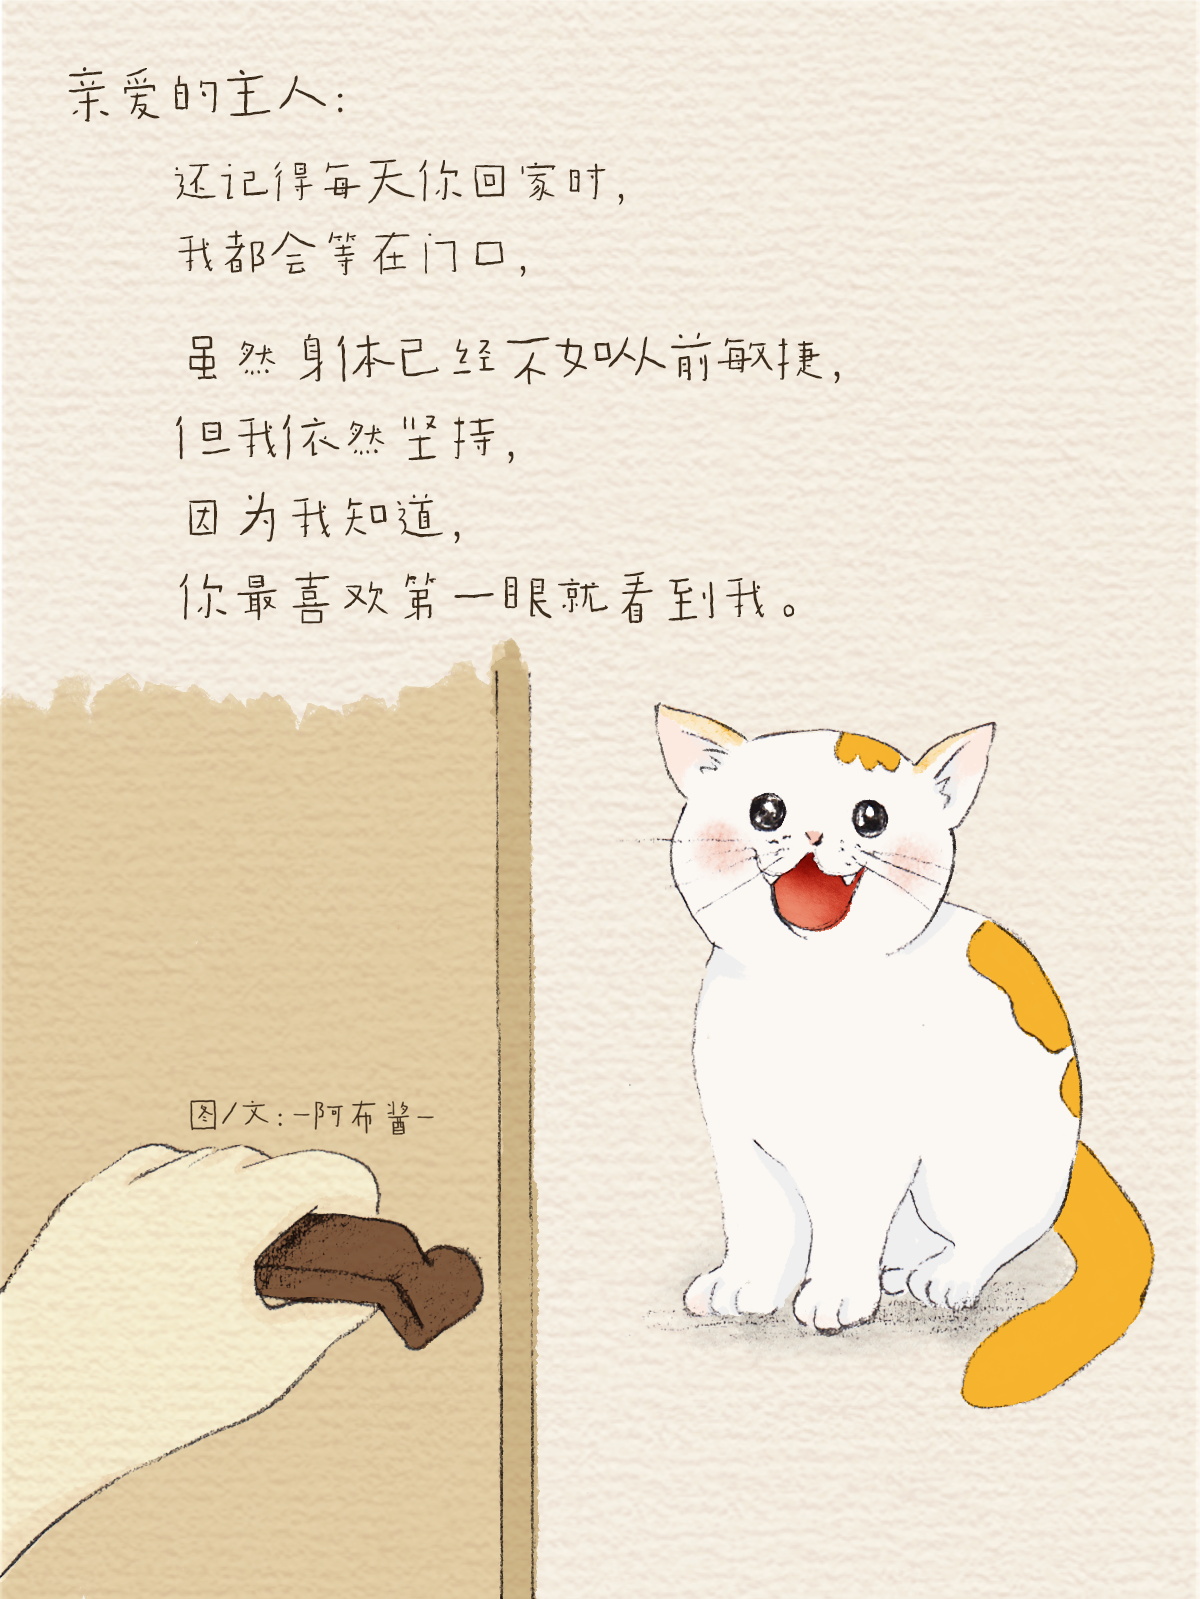 亲爱的主人：
还记得每天你回家时，
我都会等在门口，
虽然身体已经不如从前敏捷，
但我依然坚持，
因为我知道，
你最喜欢第一眼就看到我。
图/文：-阿布酱-